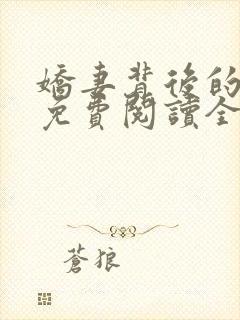 嬌妻背後的
免費閱讀全
蒼狼